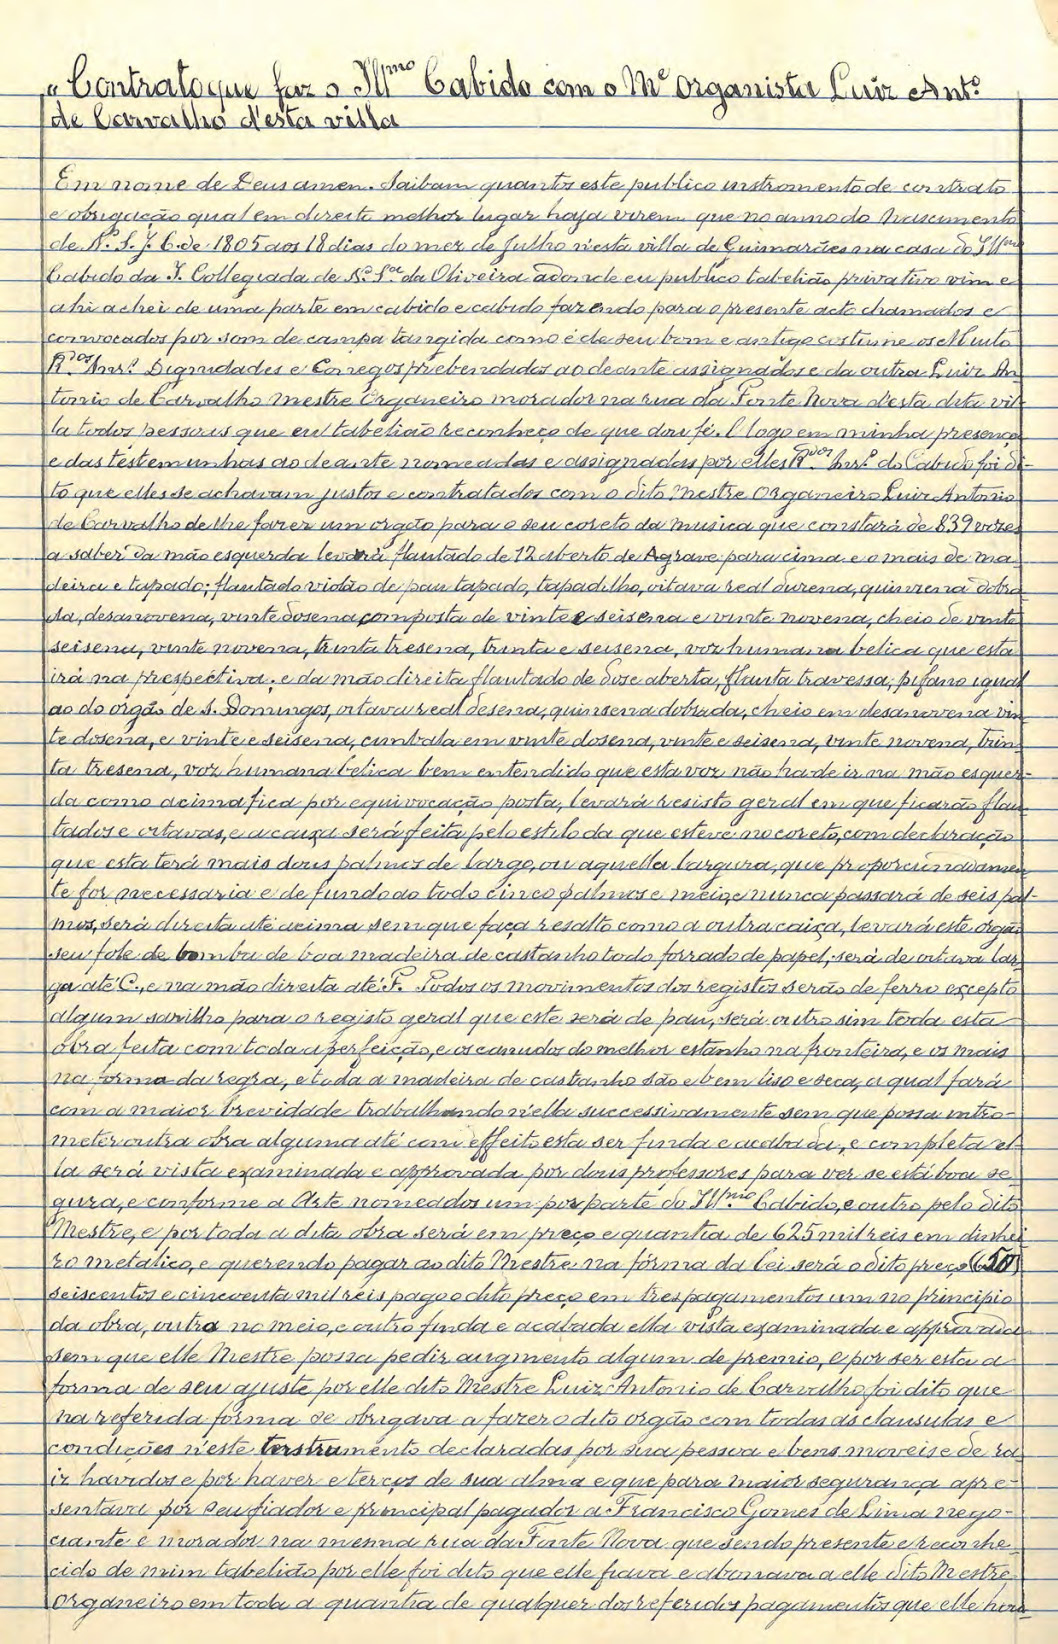 "Contrato que faz o Illmo Cabido com o Me Organista Luiz Anto
de Carvalho d'esta villa
Em nome de Deus amen. Saibam quantos este publico instromento de contrato
e obrigação qual em direito melhor lugar haja virem que no anno do Nascimento
de N. S. J. C. de 1805 aos 18 dias do mez de Julho n'esta villa de Guimarães na casa do Illmo
Cabido da I. Collegiada de Na Sa da Oliveira adonde eu publico tabelião privativo vim e
ahi achei de uma parte em cabido e cabido fazendo para o presente acto chamados e
convocados por som de campa tangida como é de seu bom e antigo costume os Muito
Rdos Snrs Dignidades e Conegos prebendados ao deante assignados e da outra Luiz An
tonio de Carvalho Mestre Organeiro morador na rua da Fonte Nova d'esta dita vil
la todos pessoas que eu tabelião reconheço de que dou fé. E logo em minha presença
e das testemunhas ao deante nomeadas e assignadas por elles Rdos Snrs do Cabido foi di
to que elles se achavam justos e contratados com o dito Mestre Organeiro Luiz Antonio
de Carvalho de lhe fazer um orgão para o seu coreto da musica que constará de 839 vozes
a saber da mão esquerda levará flautado de 12 aberto de Agrave para cima e o mais de ma
deira e tapado; flautado violão de pau tapado, tapadilho, oitava real durena, quinzena dobra
da, desanovena, vinte dosena composta de vinte e seisena e vinte novena, cheio de vinte
seisena, vinte novena, trinta tresena, trinta e seisena, voz humana belica que esta
irá na prespéctiva; e da mão direita flautado de dose aberto, flauta travessa, pifano igual
ao do orgão de S. Domingos, oitava real desena, quinsena dobrada, cheio em desanovena vin
te dosena, e vinte e seisena, cimbala em vinte dosena, vinte e seisena, vinte novena, trin
ta tresena, voz humana belica bem entendido que esta voz não hade ir na mão esquer-
da como acima fica por equivocação posta, levará resisto geral em que ficarão flau
tados e oitavas, e a caixa será feita pelo estilo da que esteve no coreto, com declaração
que esta terá mais dous palmos de largo, ou aquella largura, que proporcionadamen
te for necessaria e de fundo ao todo cinco palmos e meio, e nunca passará de seis pal-
mos, será direita até acima sem que faça resalto como a outra caixa, levará este orgão
seu fole de bomba de boa madeira de castanho todo forrado de papel, será de oitava lar
ga até C, e na mão direita até F. Todos os movimentos dos registos serão de ferro excepto
algum sarilho para o registo geral que este será de pau, será outro sim toda esta
obra feita com toda a perfeição, e os canudos do melhor estanho na fronteira, e os mais
na forma da regra, e toda a madeira de castanho são e bem liso e seca, a qual fará
com a maior brevidade trabalhando n'ella successivamente sem que possa intro-
meter outra obra alguma até com effeito esta ser finda e acabada, e completa el-
la será vista examinada e approvada por dous professores para ver se está boa se-
gura, e conforme a Arte nomeados um por parte do Illmo Cabido, e outro pelo dito
Mestre, e por toda a dita obra será em preço e quantia de 625 mil reis em dinhei
ro metalico, e querendo pagar ao dito Mestre na fórma da lei será o dito preço (650)
seiscentos e cincoenta mil réis pago o dito preço em tres pagamentos um no principio
da obra, outro no meio, e outro finda e acabada ella vista examinada e approvada
sem que elle Mestre possa pedir augmento algum de premio, e por ser esta a
forma de seu ajuste por elle dito Mestre Luiz Antonio de Carvalho foi dito que
na referida forma se obrigava a fazer o dito orgão com todas as clausulas e
condições n'este instrumento declaradas por sua pessoa e bens moveis e de ra
iz havidos e por haver e terços de sua alma e que para maior segurança apre-
sentava por seu fiador e principal pagador a Francisco Gomes de Lima nego-
ciante e morador na mesma rua da Fonte Nova que sendo presente e reconhe-
cido de mim tabelião por elle foi dito que elle fiava e abonava a elle dito Mestre
Organeiro em toda a quantia de qualquer dos referidos pagamentos que elle hou-